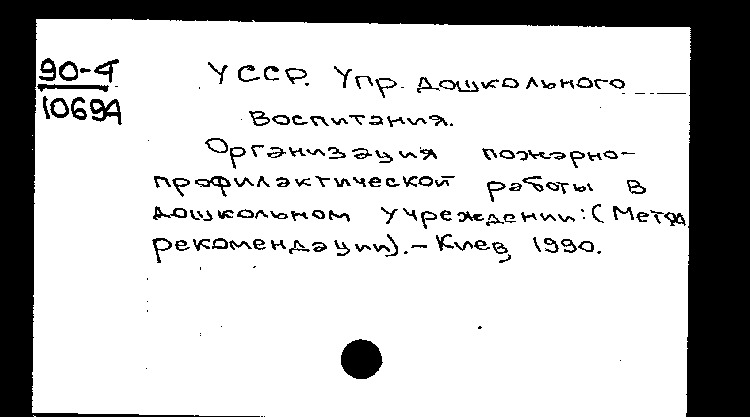 90-4
10694
УССР. Упр. дошкольного
воспитания.
Организация пожарно-
профилактической работы в
дошкольном учреждении: (Метод
рекомендации). – Киев, 1990.